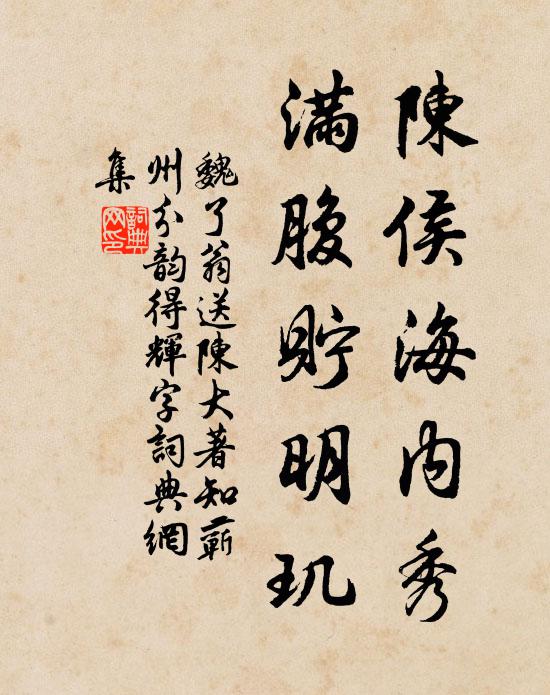 陳侯海内秀
滿腹貯明玑
魏了翁送陳大著知蘄
州分韵得輝字詞典網
集
詞典
网印